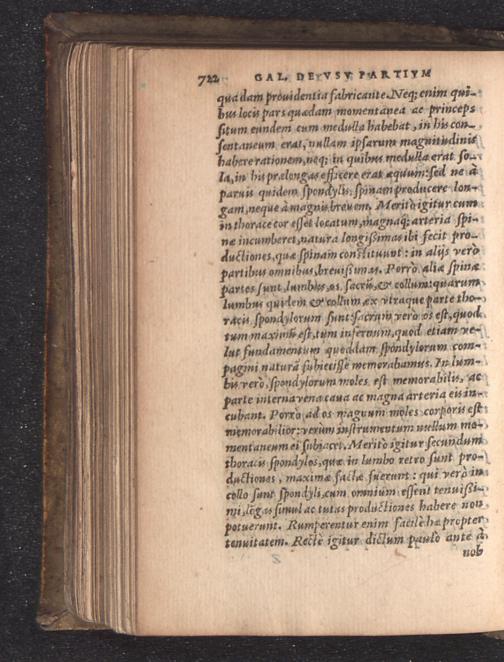 722 GAL. DE VSV PARTIVM
quadam prouidentia fabricante. Neq; enim qui-
bus locis pars quædam momentanea ac princeps
situm eundem cum medulla habebat, in his con-
sentaneum erat, nullam ipsarum magnitudinis
habere rationem, neq; in quibus medulla erat so-
la, in his prælongas efficere erat æquum: sed ne à
paruis quidem spondylis, spinam producere lon-
gam, neque à magnis breuem. Meritò igitur cum
in thorace cor esset locatum, magnaq; arteria spi-
næ incumberet, natura longissimas ibi fecit pro-
ductiones, quæ spinam constituunt: in alijs verò
partibus omnibus, breuissimas. Porrò aliæ spinæ
partes sunt, lumbus, os sacrū, & collum: quarum
lumbus quidem & collum ex vtraque parte tho-
racis spondylorum sunt: sacrum verò os est, quod
tum maximū est, tum infernum, quod etiam ve-
lut fundamentum quoddam spondylorum com-
pagini naturā subiecisse memorabamus. In lum-
bis verò, spondylorum moles est memorabilis, ac
parte interna vena caua ac magna arteria eis in-
cubant. Porrò ad os magnum moles corporis est
memorabilior: verum instrumentum nullum mo-
mentaneum ei subiacet. Meritò igitur secundum
thoracis spondylos, quæ in lumbo retro sunt pro-
ductiones, maximæ factæ fuerunt: qui verò in
collo sunt spondyli, cum omnium essent tenuissi-
mi, lōgas simul ac tutas productiones habere non
potuerunt. Rumperentur enim facilè hæ propter
tenuitatem. Rectè igitur dictum paulo ante à
nob